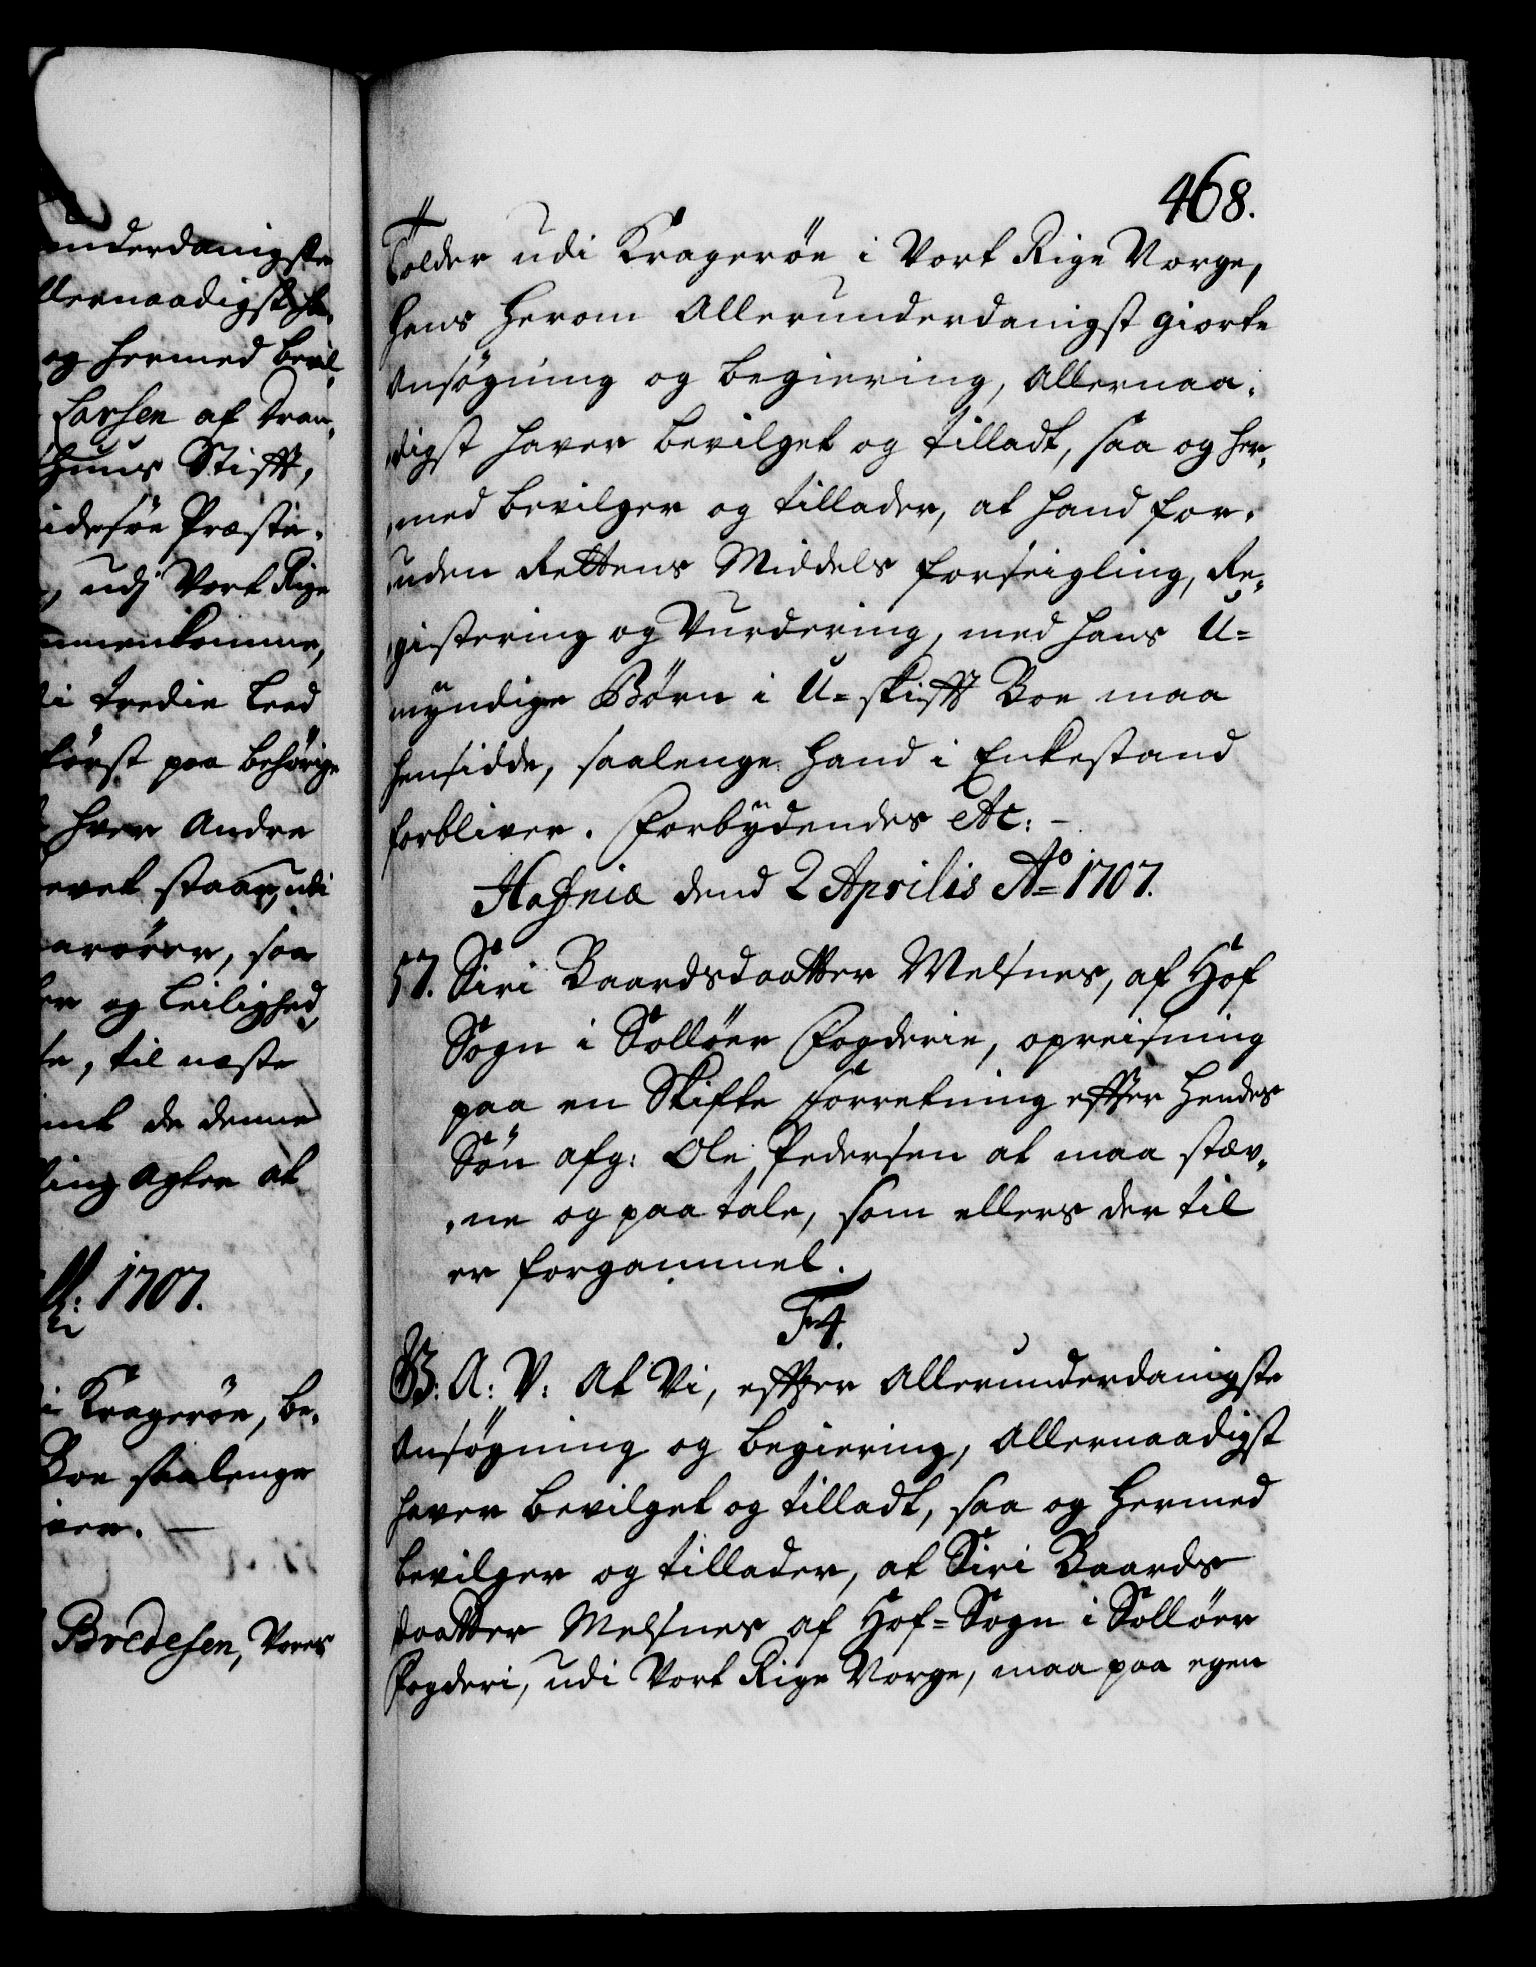 underdanigste
llernaadigst ha,
og hermed bevil,
Larsen af Tron,
huus Stifft,
idesøe Præste,
, udj Vort Rige
mmenkomme,
i tredie Leed
først paa behørige
hver Andre
evet staar, udi
arører, saa
er og Leilighed,
se, til næste
mt de denne
ing agter at
1707.
i Kragerøe, be,
Boe saalenge
iver. —
Bredesen, Vores
468.
Tolder udi Kragerøe i Vort Rige Norge,
hans herom Allerunderdanigst giorte
Ansøgning og begiering, Allernaa,
digst haver bevilget og tilladt, saa og her,
,med bevilger og tillader, at hand for,
uden Rettens Middels forseigling, Re,
gistering og Vurdering, med hans U=
mÿndige Børn i U=skifft Boe maa
hensidde, saalenge hand i Enkestand
forbliver. Forbÿdendes etc: —
Hafniæ dend 2 Aprilis Ao 1707.
57. Siri Baardsdaatter Melsnes, af Hof
Sogn i Solløer Fogderie, opreisning
paa en Skifte forretning effter hendes
Søn afg: Ole Pedersen at maa stæv,
,ne og paatale, som ellers der til
er forgammel.
F4.
G. A: V: At Vi, effter Allerunderdanigste
Ansøgning og begiering, Allernaadigst
haver bevilget og tilladt, saa og hermed
bevilger og tillader, at Siri Baards
daatter Melsnes af Hof=Sogn i Solløer
Fogderi, udi Vort Rige Norge, maa paa egen